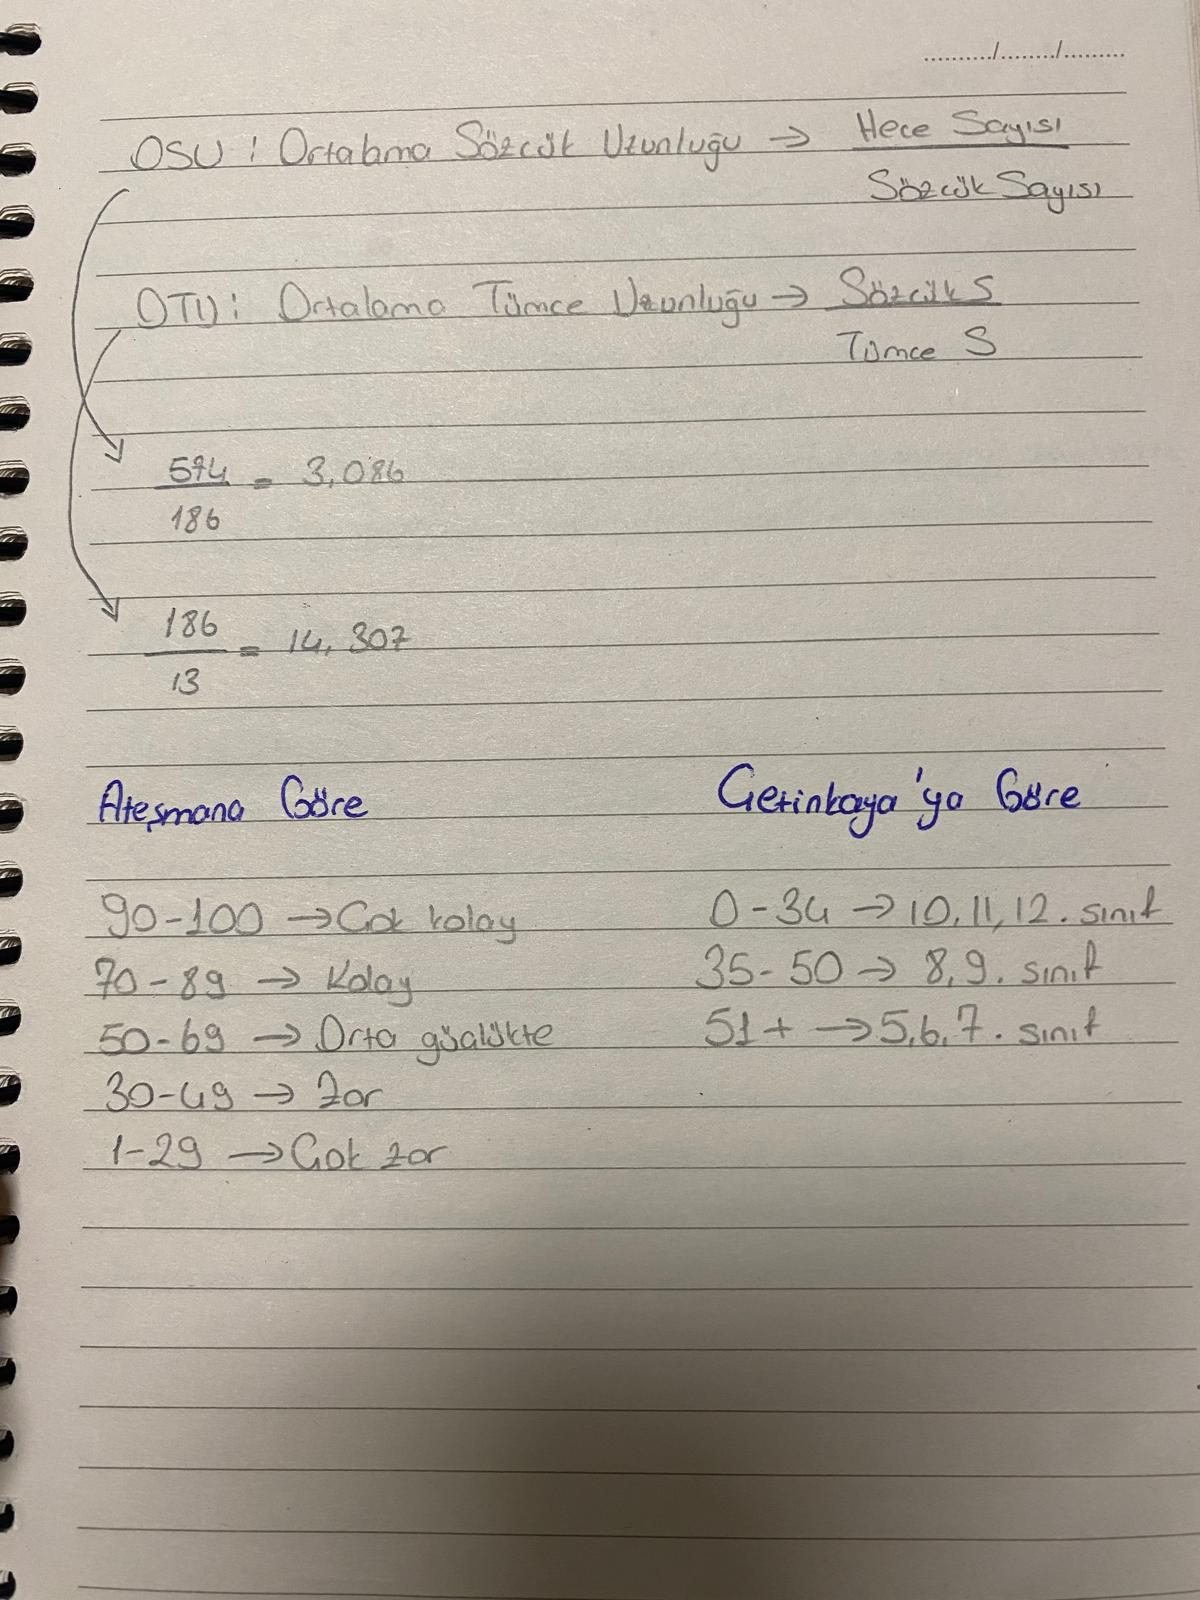 ........../......../.........
OSU : Ortalama Sözcük Uzunluğu → Hece Sayısı
Sözcük Sayısı
OTU : Ortalama Tümce Uzunluğu → Sözcük S
Tümce S
574
186 = 3,086
186
13 = 14,307
Ateşmana Göre
Çetinkaya'ya Göre
90-100 → Çok kolay
0-34 → 10,11,12. sınıf
70-89 → Kolay
35-50 → 8,9. sınıf
50-69 → Orta güçlükte
51+ → 5,6,7. sınıf
30-49 → Zor
1-29 → Çok zor